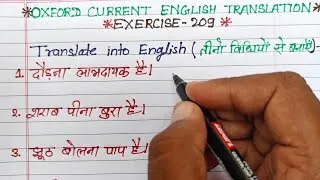 *OXFORD CURRENT ENGLISH TRANSLATION*
*EXERCISE-209*
Translate into English (तीनों विधियों से बनाएँ)-
1. दौड़ना लाभदायक है।
2. शराब पीना बुरा है।
3. झूठ बोलना पाप है।